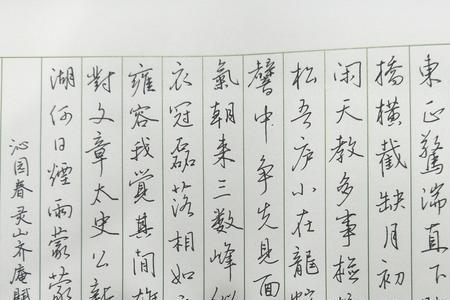 東正驚湍直下
橋橫截缺月初
閑天教多事
松吾庐小在龍
聲中争先見面
氣朝来三數峰
衣冠磊落相如
雍容我覺其間
對文章太史公
湖何日煙雨蒙蒙
沁园春灵山齐庵賦